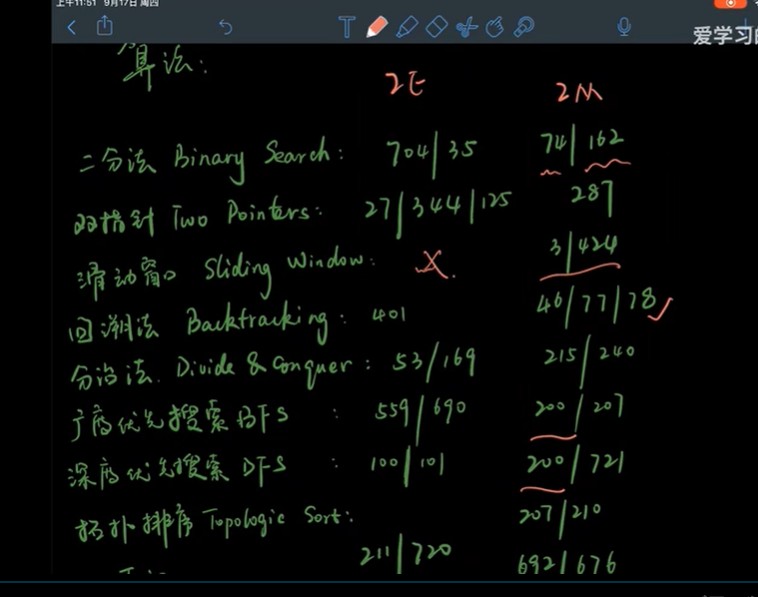 上午11:51 9月17日 周四
爱学习的
算法:
2E 2M
二分法 Binary Search: 704/35 74/162
双指针 Two Pointers: 27/344/125 287
滑动窗口 Sliding Window: X. 3/424
回溯法 Backtracking: 401 46/77/78
分治法. Divide & Conquer: 53/169 215/240
广度优先搜索 BFS : 559/690 200/207
深度优先搜索 DFS : 100/101 200/721
拓扑排序 Topologic Sort: 207/210
211/720 692/676